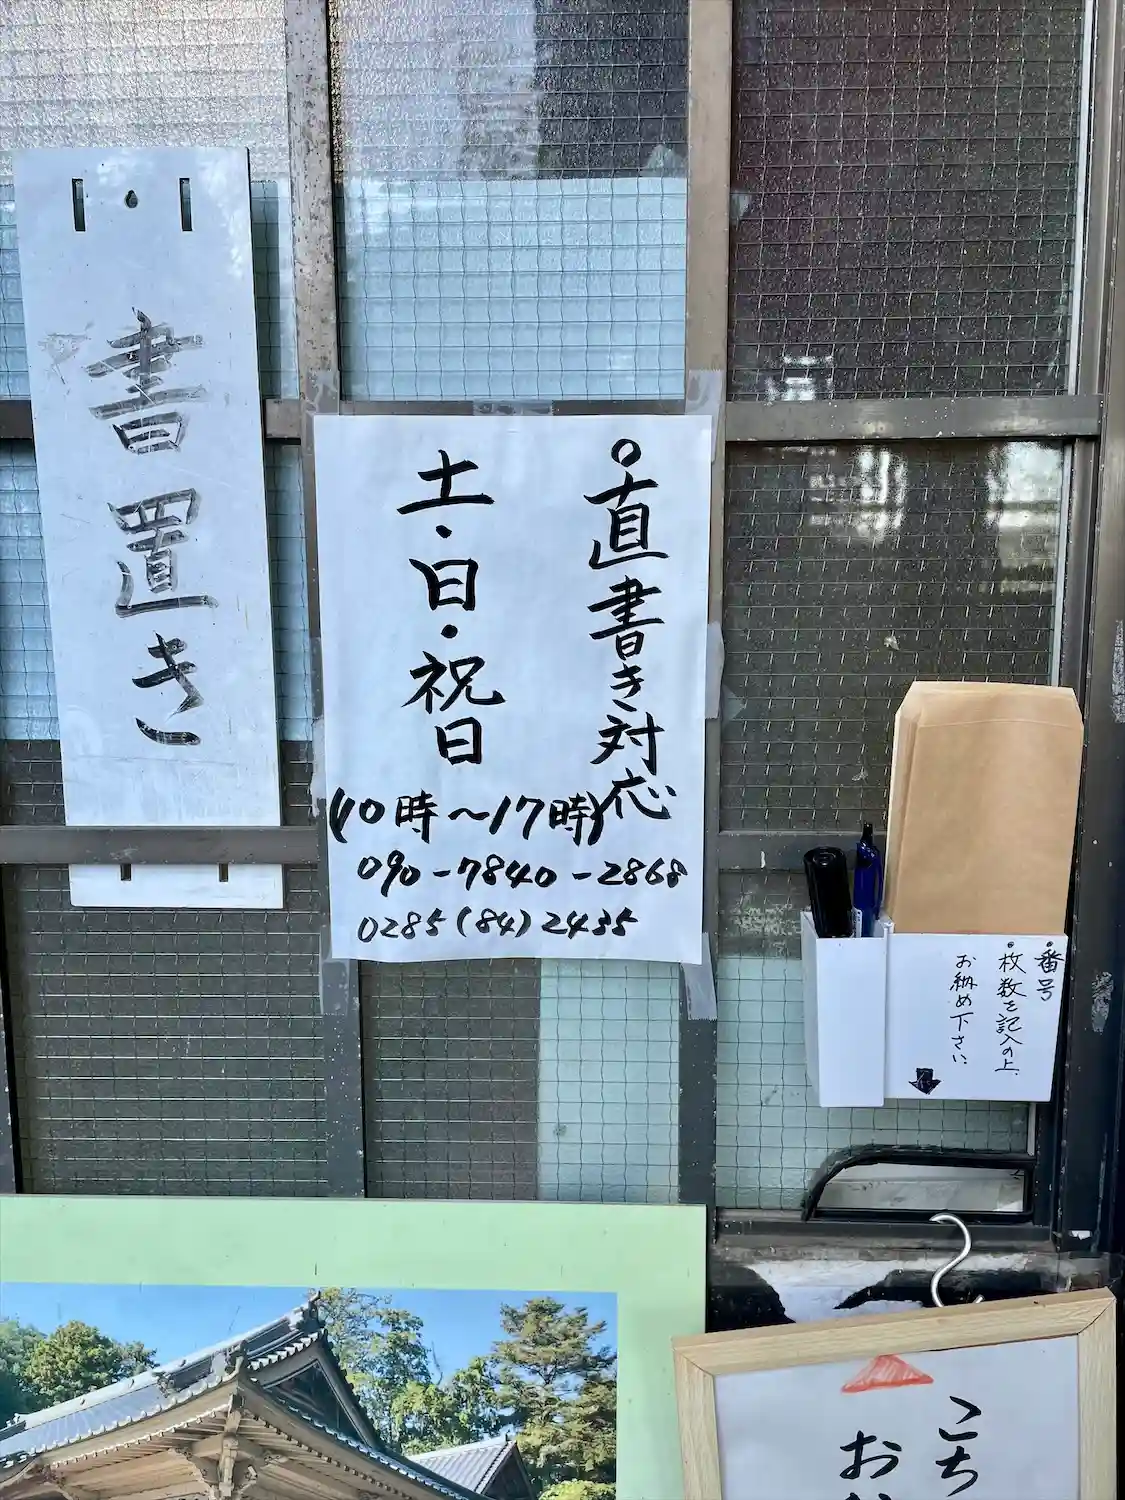 書置き
○直書き対応
土・日・祝日
(10時～17時)
090-7840-2868
0285(84)2435
・番号
・枚数を記入の上、
お納め下さい
こち
お